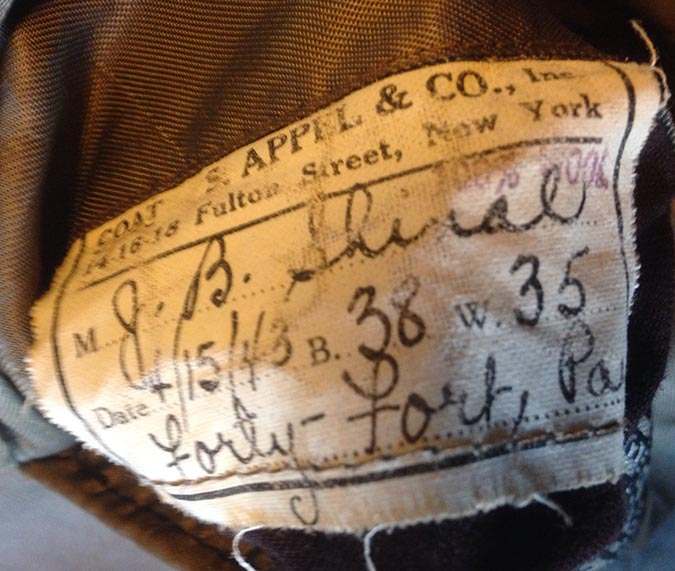 COAT S. APPEL & CO., Inc.
14-16-18 Fulton Street, New York
100% WOOL
M J. B. Shival
Date 4/15/43 B. 38 W. 35
Forty-Fort, Pa